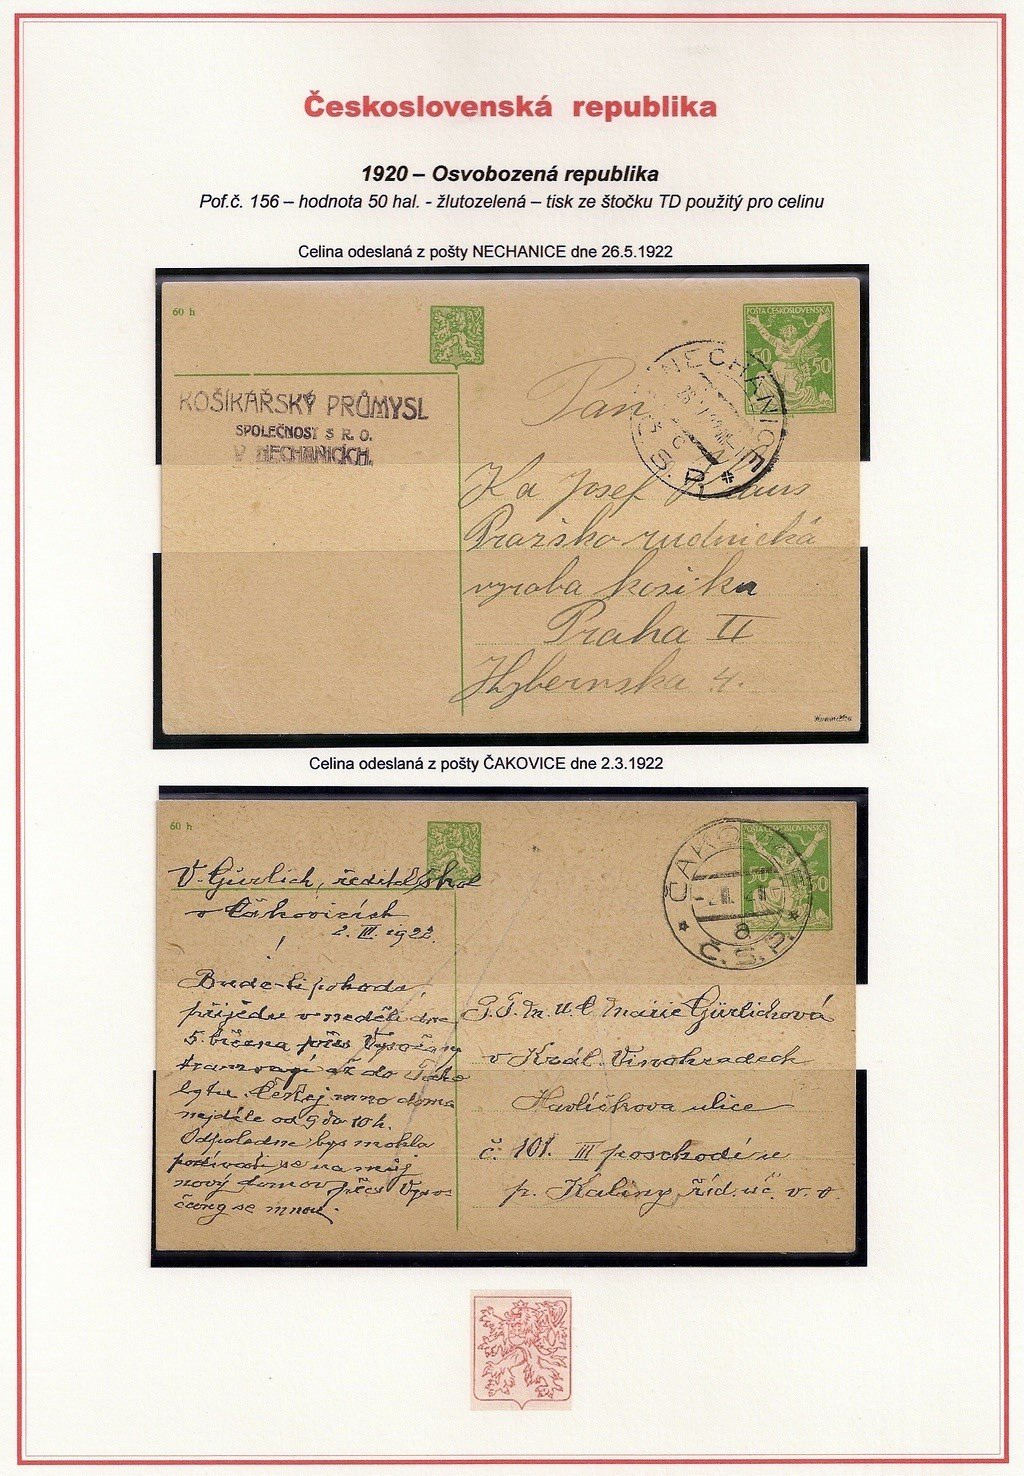 Československá republika
1920 – Osvobozená republika
Pof.č. 156 – hodnota 50 hal. - žlutozelená – tisk ze štočku TD použitý pro celinu
Celina odeslaná z pošty NECHANICE dne 26.5.1922
60 h
POŠTA ČESKOSLOVENSKA
50 50
NECHANICE
Č.S.P.
KOŠÍKÁŘSKÝ PRŮMYSL
SPOLEČNOST S R. O.
V NECHANICÍCH.
Pan
Josef Kraus
Prazsko rudnická
vyroba kosiku
Praha II
Hybernska 4.
Celina odeslaná z pošty ČAKOVICE dne 2.3.1922
60 h
POŠTA ČESKOSLOVENSKA
50 50
ČAKOVICE
2 III 22
8
Č.S.P.
V. Gürlich, ředitel škol
v Čakovicích
2. III. 1922.
!
Bude-li pohoda,
přijedu v neděli dne
5. března přes Vysočany
tramvají až do
doma
nejdéle od 9 do 10 h.
Odpoledne bys mohla
podívati se na můj
nový domov přes Vyso
čany se mnou.
Marie Gürlichová
v Král. Vinohradech
Havlíčkova ulice
č. 101. III poschodí u
p. Kaliny říd. uč. v. v.